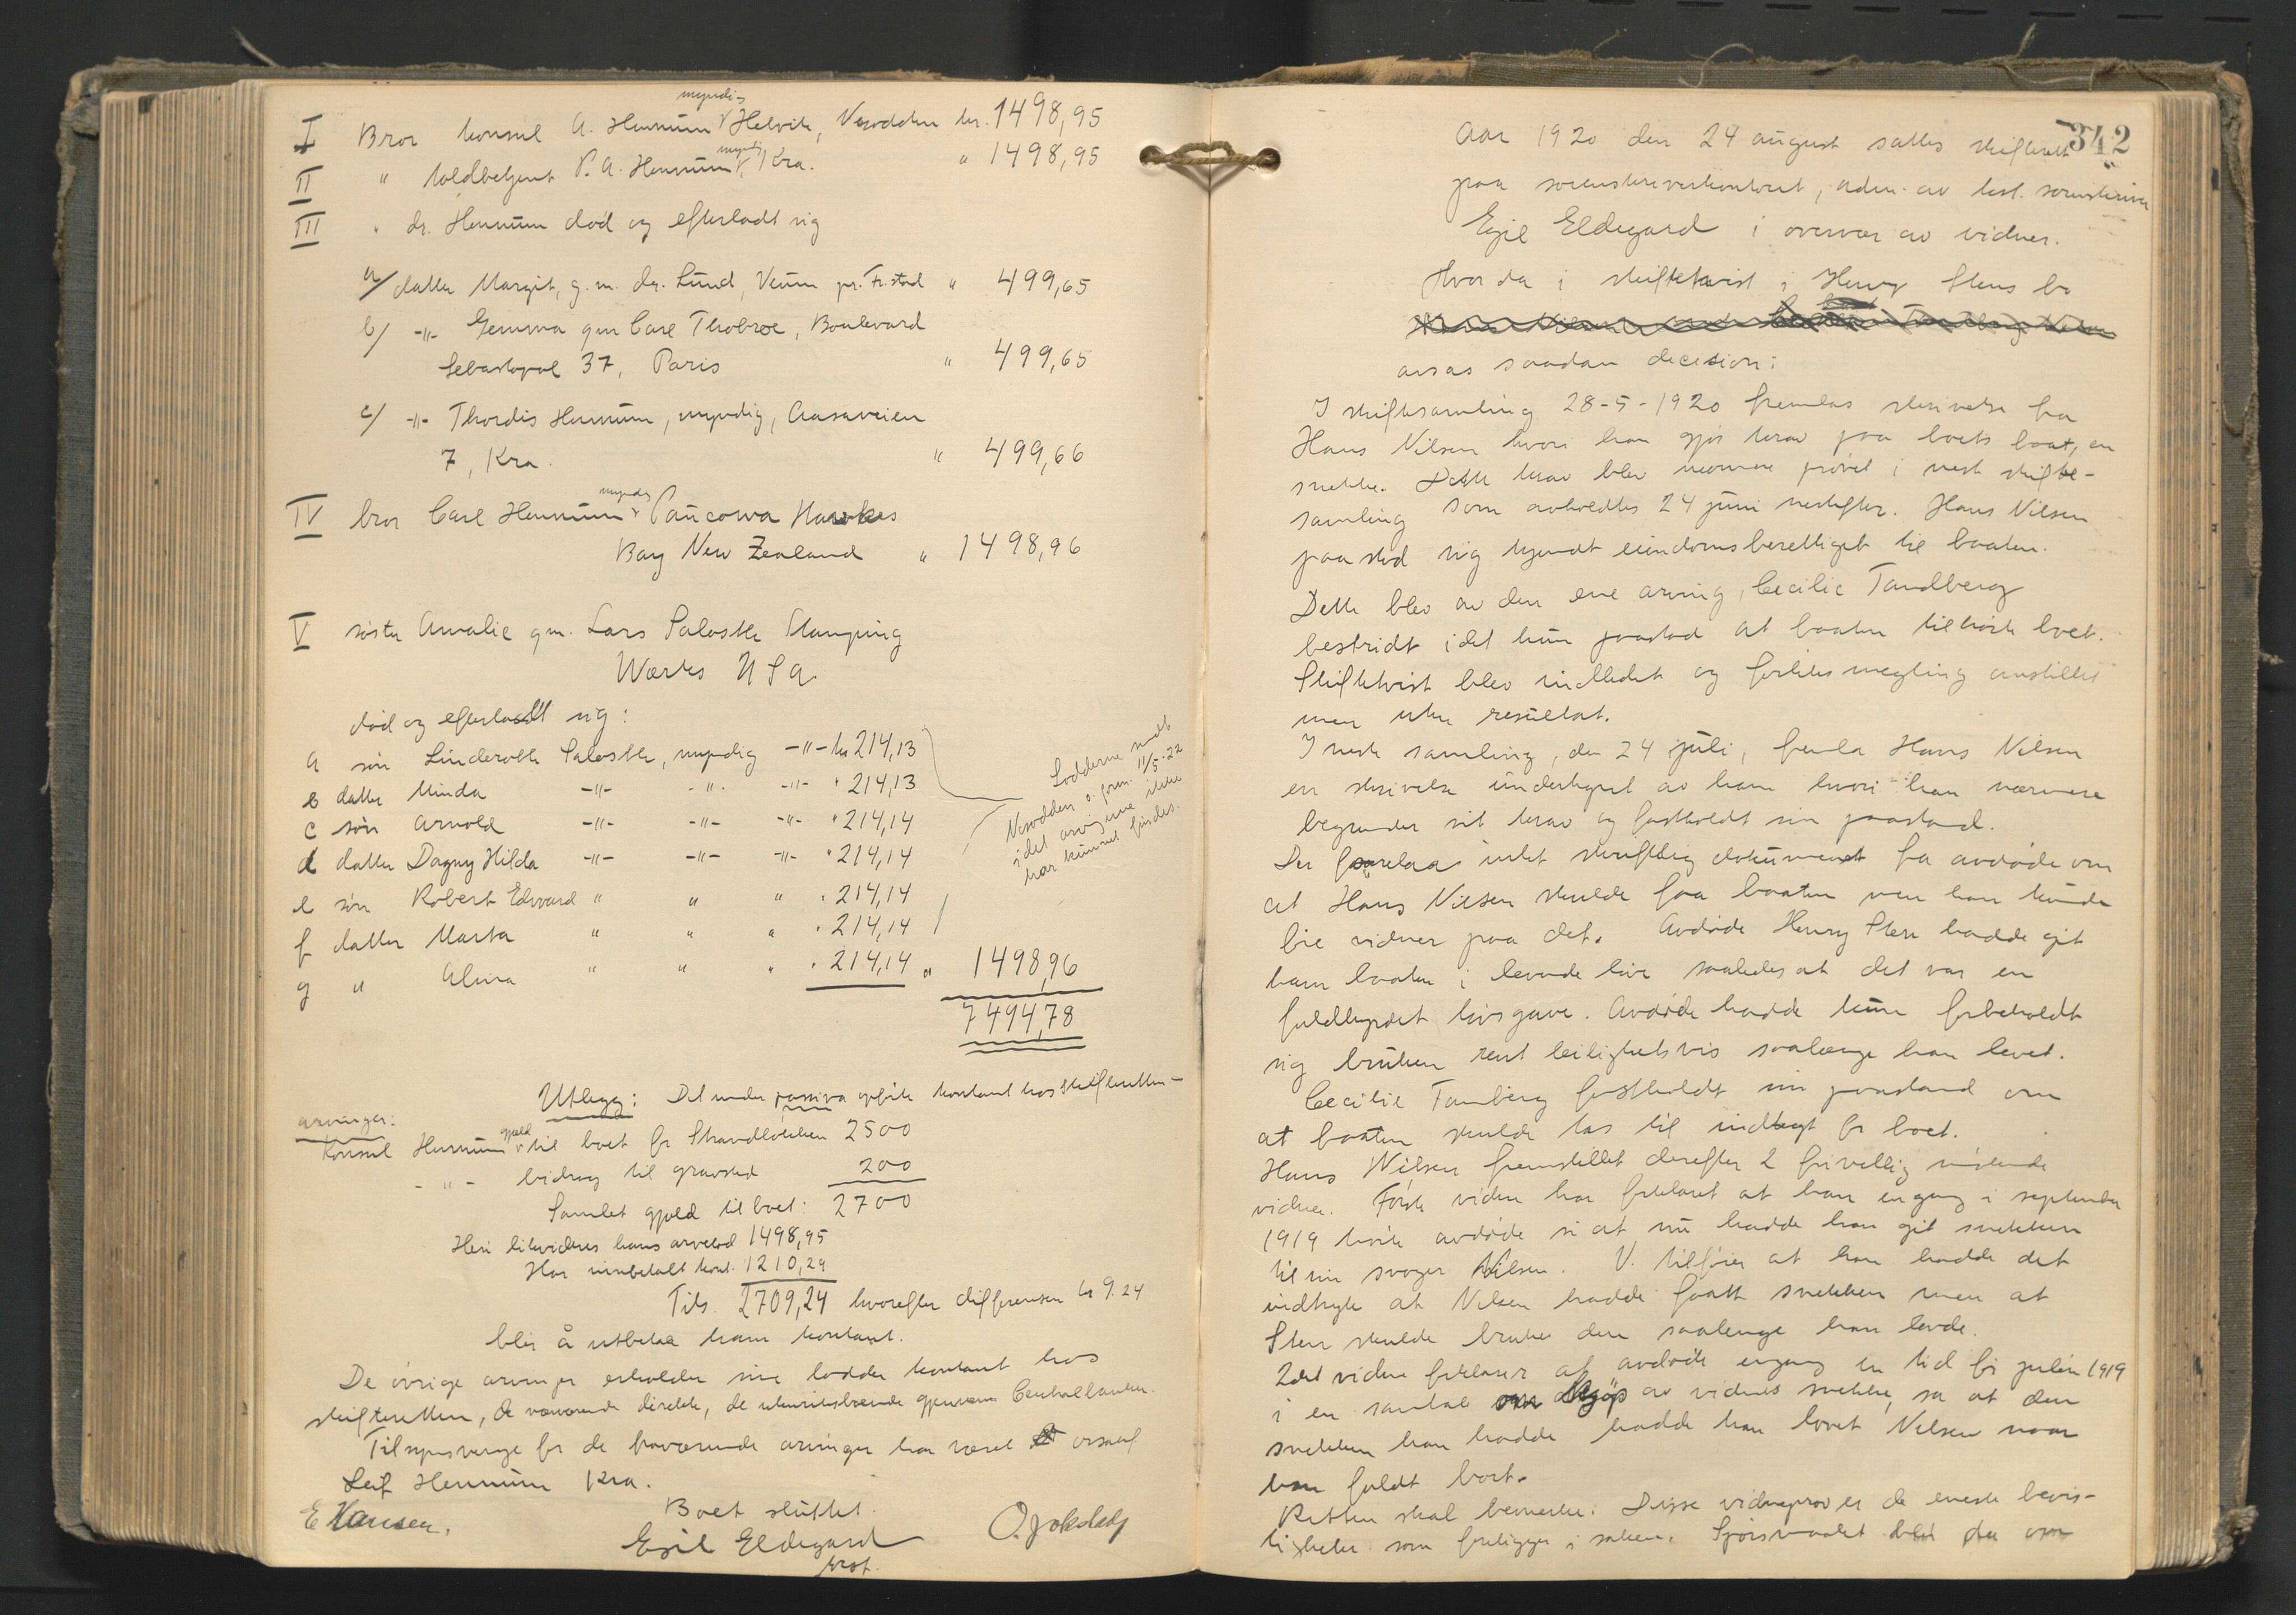 I Bror konsul A. Hennum myndig Helvik, Nesodden kr. 1498,95
II " toldbetjent P. A. Hennum myndig, Kra. " 1498,95
III " dr. Hennum død og efterladt sig
a/ datter Margit, g.m. dr. Lund, Veum pr. Fr.stad " 499,65
b/ -"- Gemma gm Carl Thobroe, Boulevard
Sebastopol 37, Paris " 499,65
c/ -"- Thordis Hennum, myndig, Aasaveien
7, Kra. " 499,66
IV bror Carl Hennum myndig Pancowa Hawkes
Bay New Zealand " 1498,96
V søster Amalie gm. Lars Saloske Stamping
Works U S A.
død og efterladt sig:
a søn Linderoth Saloske, myndig -"- kr 214,13
b datter Minda -"- -"- -"- " 214,13
c søn Arnold -"- -"- -"- " 214,14
d datter Dagny Hilda -"- -"- -"- " 214,14
e søn Robert Edward " " " " 214,14
f datter Marta " " " " 214,14
g " Alma " " " " 214,14 " 1498,96
7494,78
Lodderne
Nesodden o. form. 11/5-22
idet arvingerne ikke
har kunnet findes.
Utlegg: Det under passiva opførte kontant hos skifteretten -
arvinger:
Konsul Hennum gjeld til boet for Strandløkken 2500
- " - bidrag til gravsted 200
Samlet gjeld til boet: 2700
Heri likvideres hans arvelod 1498,95
Har innbetalt kont. 1210,29
Tils. 2709,24 hvorefter differensen kr 9.24
blir å utbetale ham kontant.
De øvrige arvinger erholder sine lodder kontant hos
skifteretten, de nærværende direkte, de utenriksboende gjennem Centralbanken.
Tilsynsverge for de fraværende arvinger har været orsaaf
Leif Hennum Kra.
Boet sluttet.
E Hansen. Egil Eldegard
konst.
342
Aar 1920 den 24 august sattes skifterett
paa sorenskriverkontoret, adm. av kst. sorenskriver
Egil Eldegard i overvær av vidner.
Hvor da i skiftetvist i Henry Stens bo
avsas saadan decision:
I skiftesamling 28-5-1920 fremlas skrivelse fra
Hans Nilsen hvori han gjør krav paa boets baat, en
snekke. Dette krav blev nærmere prøvet i nest skifte-
samling som avholdtes 24 juni nestefter. Hans Nilsen
paastod sig kjendt eiendomsberettiget til baaten.
Dette blev av den ene arving, Cecilie Tandberg
bestridt idet hun paastod at baaten tilhørte boet.
Skiftetvist blev indledet og forliksmegling anstillet
men uten resultat.
I neste samling, den 24 juli, fremla Hans Nilsen
en skrivelse undertegnet av ham hvori han nærmere
begrunder sit krav og fastholdt sin paastand.
Der forelaa intet skriftlig dokument fra avdøde om
at Hans Nilsen skulde faa baaten men han kunde
føre vidner paa det. Avdøde Henry Sten hadde git
ham baaten i levende live saaledes at det var en
fuldbyrdet livsgave. Avdøde hadde kun forbeholdt
sig bruken rent leilighetsvis saalænge han levet.
Cecilie Tamberg fastholdt sin paastand om
at baaten skulde tas til indtegt for boet.
Hans Nilsen fremstillet derefter 2 frivillig møtende
vidner. Første vidne har forklaret at han engang i september
1919 hørte avdøde si at nu hadde han git snekken
til sin svoger Nilsen. V. tilføier at han hadde det
indtryk at Nilsen hadde faatt snekken men at
Sten skulde bruke den saalenge han levde.
2det vidne forklarer at avdøde engang en tid før julen 1919
i en samtale om kjøp av vidnets snekke, sa at den
snekken han hadde hadde han lovet Nilsen naar
han faldt bort.
Retten skal bemerke: Disse vidneprov er de eneste bevis-
ligheter som foreligger i saken. Spørsmaalet blir da om